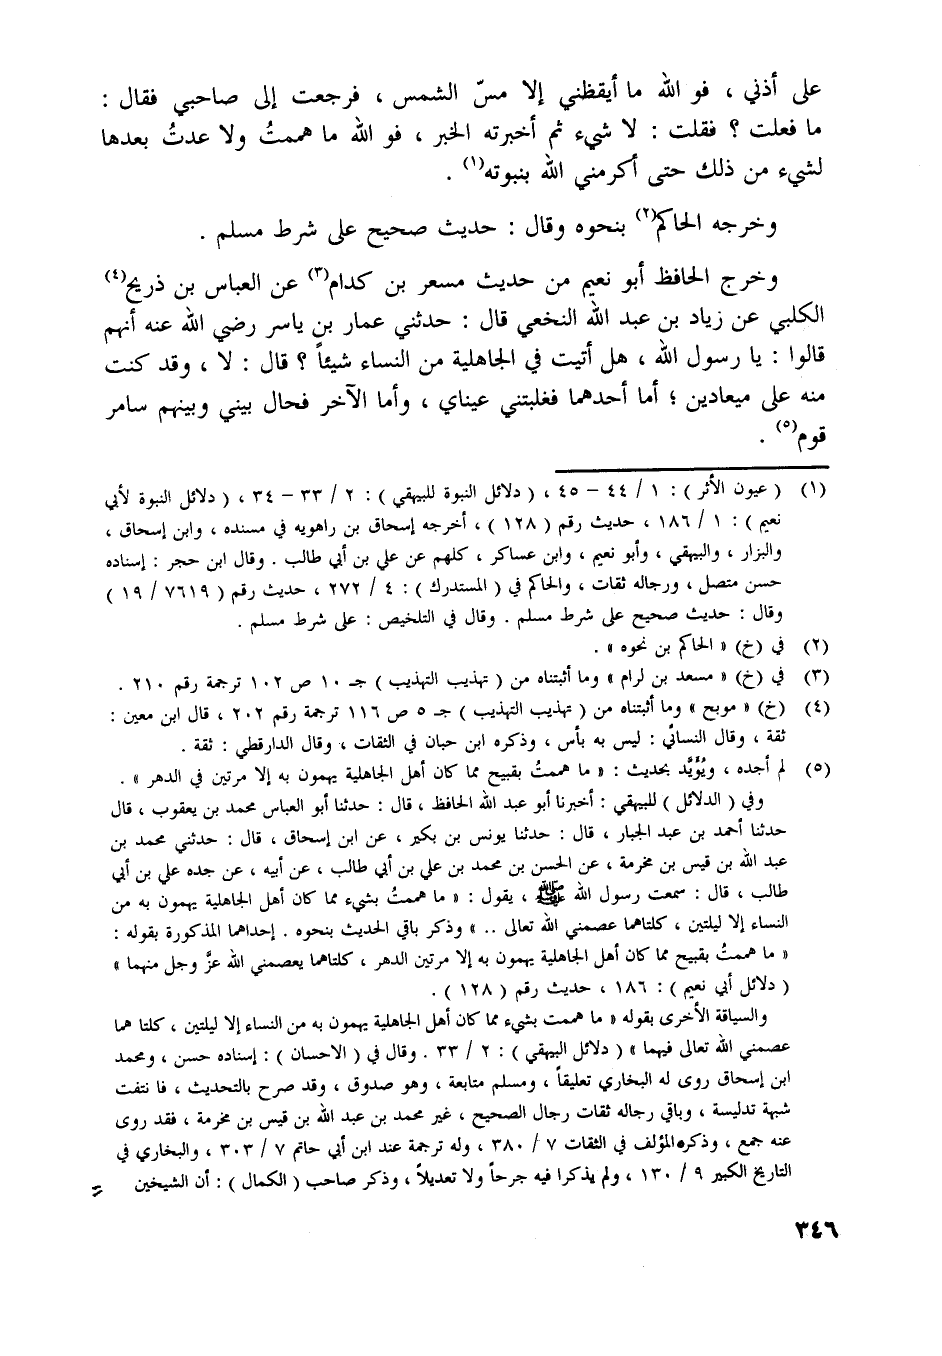 على أذني ، فو الله ما أيقظني إلا مسّ الشمس ، فرجعت إلى صاحبي فقال :
ما فعلت ؟ فقلت : لا شيء ثم أخبرته الخبر ، فو الله ما هممتُ ولا عدتُ بعدها
لشيء من ذلك حتى أكرمني الله بنبوته(١) .
وخرجه الحاكم(٢) بنحوه وقال : حديث صحيح على شرط مسلم .
وخرج الحافظ أبو نعيم من حديث مسعر بن كدام(٣) عن العباس بن ذريح(٤)
الكلبي عن زياد بن عبد الله النخعي قال : حدثني عمار بن ياسر رضي الله عنه أنهم
قالوا : يا رسول الله ، هل أتيت في الجاهلية من النساء شيئاً ؟ قال : لا ، وقد كنت
منه على ميعادين ؛ أما أحدهما فغلبتني عيناي ، وأما الآخر فحال بيني وبينهم سامر
قوم(٥) .
(١) ( عيون الأثر ) : ١ / ٤٤ – ٤٥ ، ( دلائل النبوة للبيهقي ) : ٢ / ٣٣ – ٣٤ ، ( دلائل النبوة لأبي
نعيم ) : ١ / ١٨٦ ، حديث رقم ( ١٢٨ ) ، أخرجه إسحاق بن راهويه في مسنده ، وابن إسحاق ،
والبزار ، والبيهقي ، وأبو نعيم ، وابن عساكر ، كلهم عن علي بن أبي طالب . وقال ابن حجر : إسناده
حسن متصل ، ورجاله ثقات ، والحاكم في ( المستدرك ) : ٤ / ٢٧٢ ، حديث رقم ( ٧٦١٩ / ١٩ )
وقال : حديث صحيح على شرط مسلم . وقال في التلخيص : على شرط مسلم .
(٢) في (خ) « الحاكم بن نحوه » .
(٣) في (خ) « مسعد بن لرام » وما أثبتناه من ( تهذيب التهذيب ) جـ ١٠ ص ١٠٢ ترجمة رقم ٢١٠ .
(٤) (خ) « موبح » وما أثبتناه من ( تهذيب التهذيب ) جـ ٥ ص ١١٦ ترجمة رقم ٢٠٢ ، قال ابن معين :
ثقة ، وقال النسائي : ليس به بأس ، وذكره ابن حبان في الثقات ، وقال الدارقطي : ثقة .
(٥) لم أجده ، ويُؤَيَّد بحديث : « ما هممتُ بقبيح مما كان أهل الجاهلية يهمون به إلا مرتين في الدهر » .
وفي ( الدلائل ) للبيهقي : أخبرنا أبو عبد الله الحافظ ، قال : حدثنا أبو العباس محمد بن يعقوب ، قال
حدثنا أحمد بن عبد الجبار ، قال : حدثنا يونس بن بكير ، عن ابن إسحاق ، قال : حدثني محمد بن
عبد الله بن قيس بن مخرمة ، عن الحسن بن محمد بن علي بن أبي طالب ، عن أبيه ، عن جده علي بن أبي
طالب ، قال : سمعت رسول الله ﷺ ، يقول : « ما هممتُ بشيء مما كان أهل الجاهلية يهمون به من
النساء إلا ليلتين ، كلتاهما عصمني الله تعالى .. » وذكر باقي الحديث بنحوه . إحداهما المذكورة بقوله :
« ما هممتُ بقبيح مما كان أهل الجاهلية يهمون به إلا مرتين الدهر ، كلتاهما يعصمني الله عزَّ وجل منهما »
( دلائل أبي نعيم ) : ١٨٦ ، حديث رقم ( ١٢٨ ) .
والسياقة الأخرى بقوله « ما هممت بشيء مما كان أهل الجاهلية يهمون به من النساء إلا ليلتين ، كلتا هما
عصمني الله تعالى فيهما » ( دلائل البيهقي ) : ٢ / ٣٣ . وقال في ( الاحسان ) : إسناده حسن ، ومحمد
ابن إسحاق روى له البخاري تعليقاً ، ومسلم متابعة ، وهو صدوق ، وقد صرح بالتحديث ، فا نتفت
شبهة تدليسة ، وباقي رجاله ثقات رجال الصحيح ، غير محمد بن عبد الله بن قيس بن مخرمة ، فقد روى
عنه جمع ، وذكره المؤلف في الثقات ٧ / ٣٨٠ ، وله ترجمة عند ابن أبي حاتم ٧ / ٣٠٣ ، والبخاري في
التاريخ الكبير ٩ / ١٣٠ ، ولم يذكرا فيه جرحاً ولا تعديلاً ، وذكر صاحب ( الكمال ) : أن الشيخين =
٣٤٦